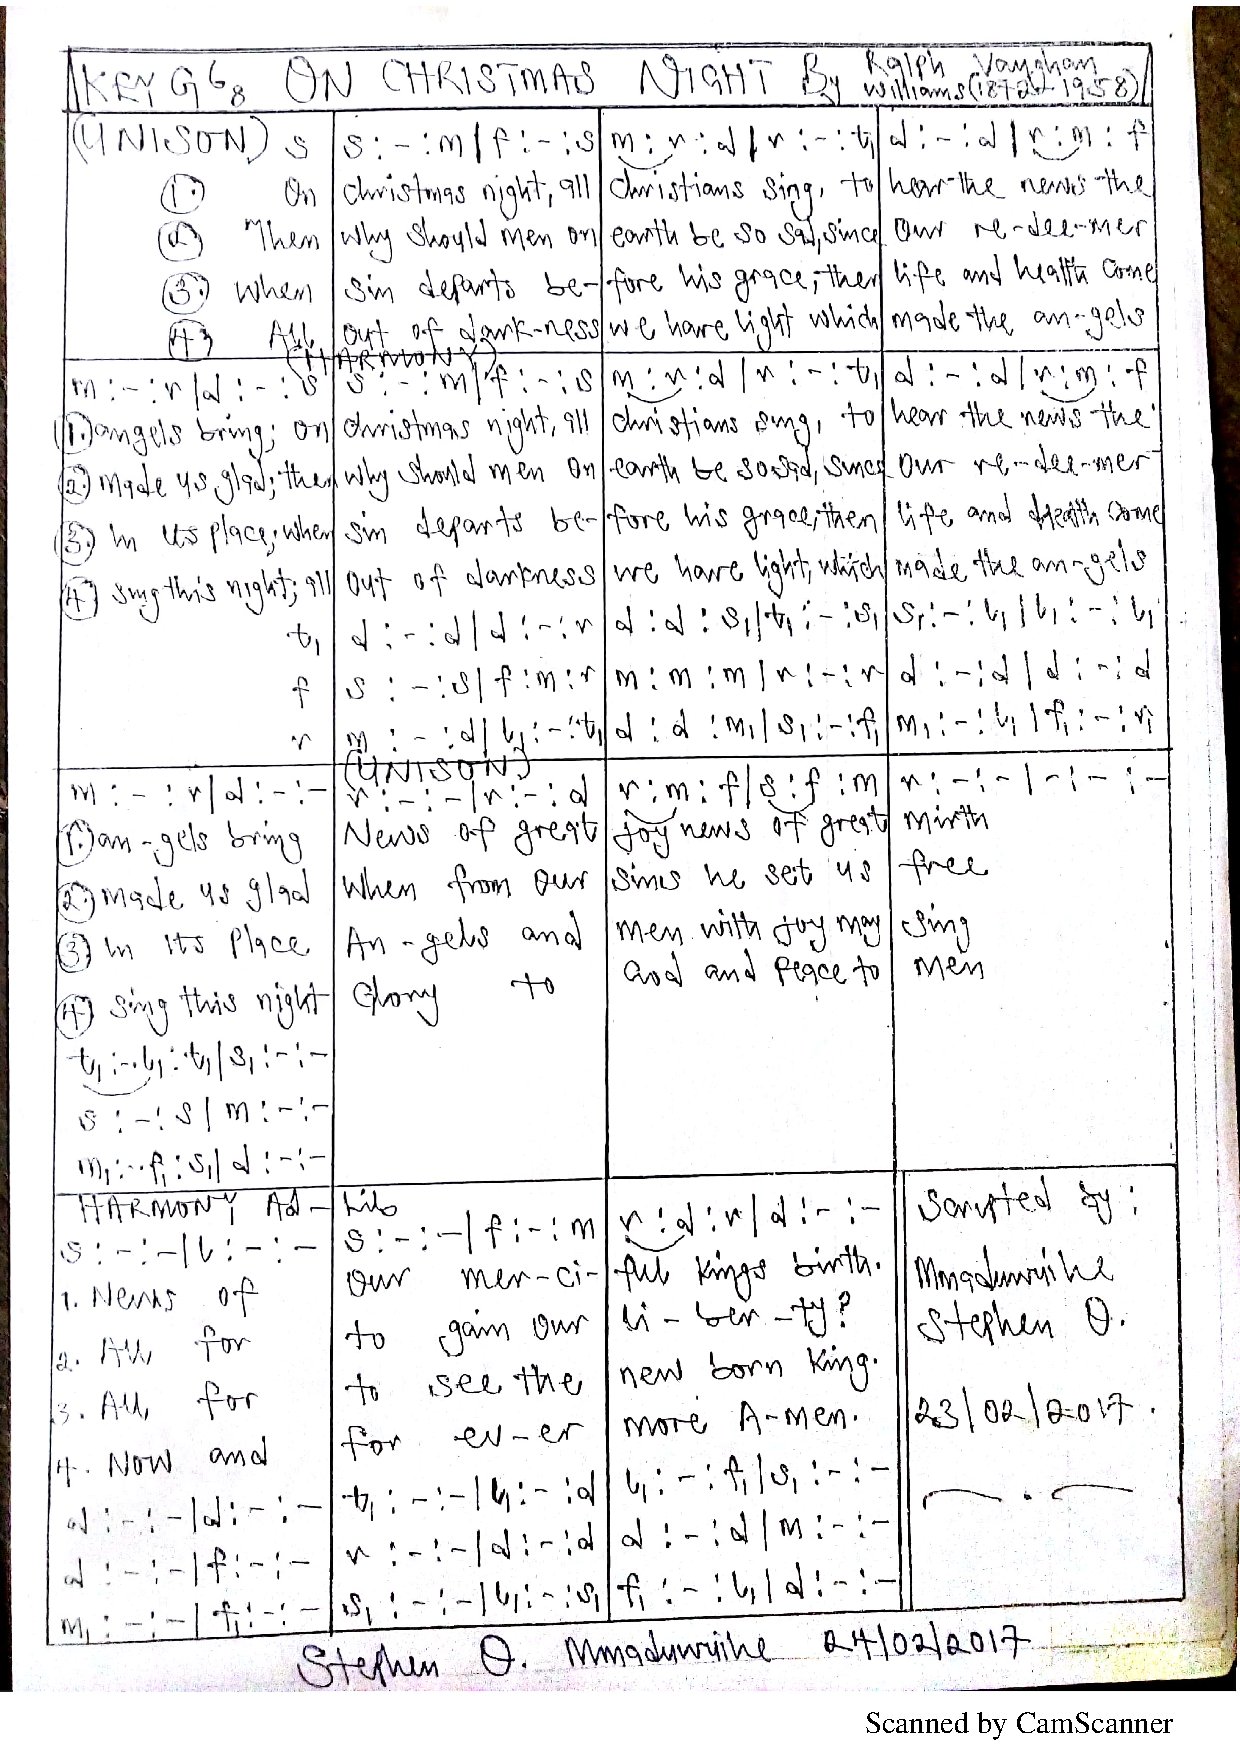 KEY G 6/8 ON CHRISTMAS NIGHT By Ralph Vaughan Williams (1872 - 1958)
(UNISON) s | s : - : m | f : - : s | m : r : d | r : - : t₁ | d : - : d | r : m : f
1. On | Christmas night, all | Christians sing, to | hear the news the
2. Then | why should men on | earth be so sad, since | our re-dee-mer
3. When | sin departs be- | fore his grace, then | life and health come
4. All | out of dark-ness | we have light which | made the an-gels
(HARMONY)
m : - : r | d : - : s | s : - : m | f : - : s | m : r : d | r : - : t₁ | d : - : d | r : m : f
1. angels bring; on | christmas night, all | christians sing, to | hear the news the
2. made us glad; then | why should men on | earth be so sad, since | our re-dee-mer
3. in its place; when | sin departs be- | fore his grace, then | life and health come
4. sing this night; all | out of darkness | we have light, which | made the an-gels
t₁ | d : - : d | d : - : r | d : d : s₁ | t₁ : - : s₁ | s₁ : - : l₁ | l₁ : - : l₁
f | s : - : s | f : m : r | m : m : m | r : - : r | d : - : d | d : - : d
r | m : - : d | l₁ : - : t₁ | d : d : m₁ | s₁ : - : f₁ | m₁ : - : l₁ | f₁ : - : r₁
(UNISON)
m : - : r | d : - : - | r : - : - | r : - : d | r : m : f | s : f : m | r : - : - | - : - : -
1. an-gels bring | News of great | joy news of great | mirth
2. made us glad | when from our | sins he set us | free
3. in its place | An-gels and | men with joy may | sing
4. sing this night | Glory to | God and peace to | men
t₁ : - . l₁ : t₁ | s₁ : - : -
s : - : s | m : - : -
m₁ : - . f₁ : s₁ | d : - : -
HARMONY, Ad-Lib
s : - : - | l : - : - | s : - : - | f : - : m | r : d : r | d : - : -
1. News of | our mer-ci- | ful kings birth.
2. All for | to gain our | li-ber-ty?
3. All for | to see the | new born king.
4. Now and | for ev-er | more A-men.
d : - : - | d : - : - | t₁ : - : - | l₁ : - : d | l₁ : - : f₁ | s₁ : - : -
d : - : - | f : - : - | r : - : - | d : - : d | d : - : d | m : - : -
m₁ : - : - | f₁ : - : - | s₁ : - : - | l₁ : - : s₁ | f₁ : - : l₁ | d : - : -
Scripted by :
Mmaduwuihe
Stephen O.
23/02/2017.
Stephen O. Mmaduwuihe 24/02/2017
Scanned by CamScanner